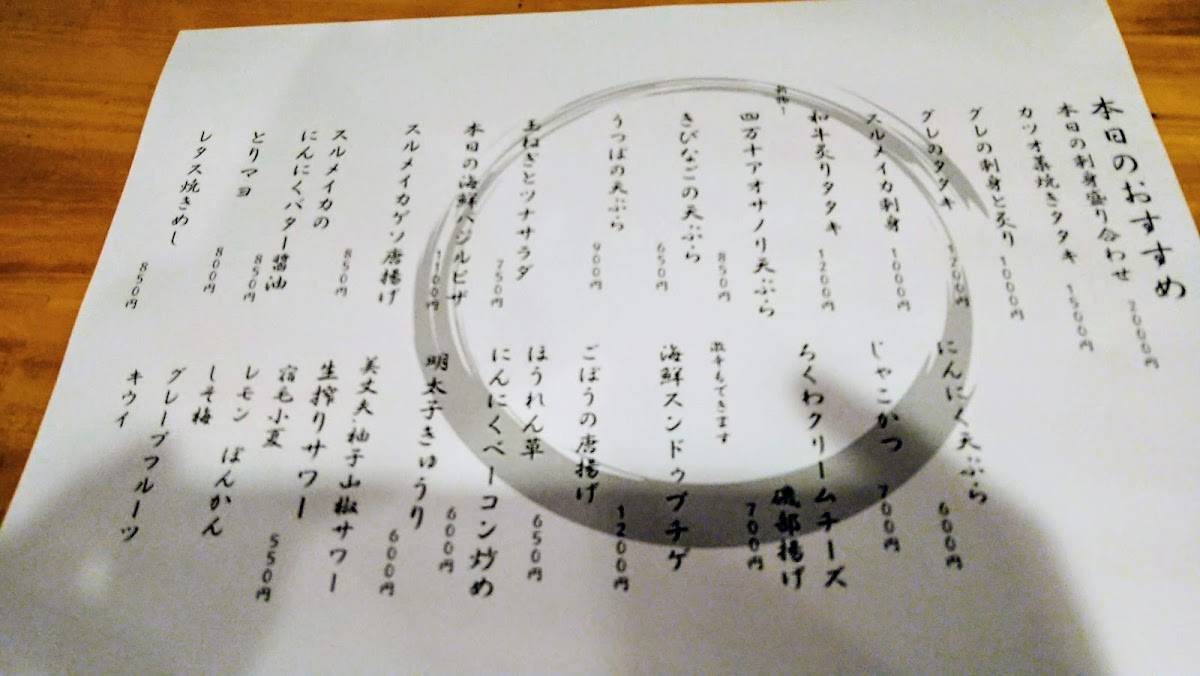 本日のおすすめ
本日の刺身盛り合わせ 2000円
カツオ藁焼きタタキ 1500円
グレの刺身と炙り 1000円
グレのタタキ 1200円
スルメイカ刺身 1000円
和牛炙りタタキ 1200円
四万十アオサノリ天ぷら 850円
きびなごの天ぷら 650円
うつぼの天ぷら 900円
玉ねぎとツナサラダ 750円
本日の海鮮バジルピザ 1100円
スルメイカゲソ唐揚げ 850円
スルメイカの
にんにくバター醤油 850円
とりマヨ 800円
レタス焼きめし 850円
にんにく天ぷら 600円
じゃこかつ 700円
ちくわクリームチーズ
磯部揚げ 700円
激辛もできます
海鮮スンドゥブチゲ 1200円
ごぼうの唐揚げ 650円
ほうれん草
にんにくベーコン炒め 600円
明太子きゅうり 600円
美丈夫・柚子山椒サワー
生搾りサワー 550円
宿毛小夏
レモン ぽんかん
しそ梅
グレープフルーツ
キウイ